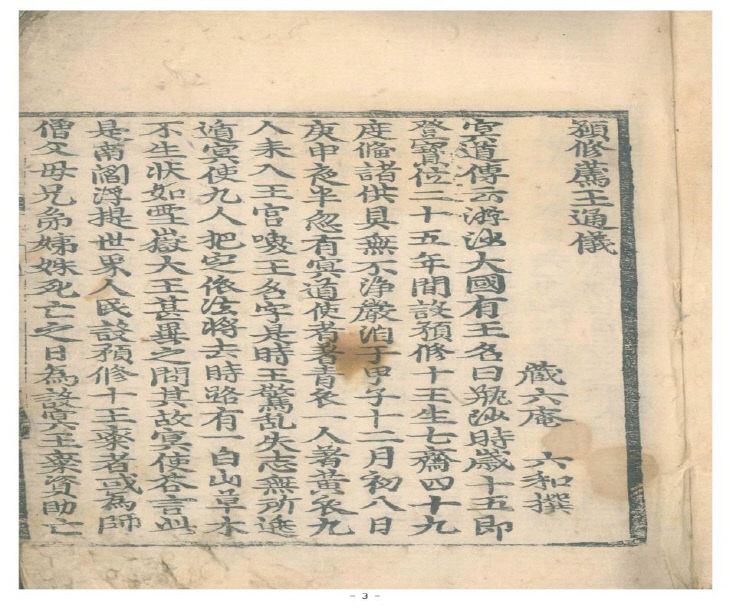 預修薦王通儀
藏六庵 六和撰
冥道傳云游沙大國有王名曰瓶沙時歲十五即
登寶位二十五年開設預修十王生七齋四十九
度俻諸供具無不浄嚴洎于甲子十二月初八日
庚申夜半忽有冥道使者著青衣一人著黃衣九
人来入王官喚王名字是時王驚乱失志無所逃
遁冥使九人把定依法将去時路有一白山草木
不生狀如雪嶽大王甚異之問其故冥使荅言此
是南閻浮提世界人民設預修十王齋者或為師
僧父母兄弟姊妹死亡之日為設冥王齋資助亡
- 3 -